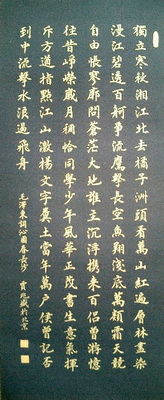 獨立寒秋湘江北去橘子洲頭看萬山紅遍層林盡染
漫江碧透百舸爭流鷹擊長空魚翔淺底萬類霜天競
自由悵寥廓問蒼茫大地誰主沉浮攜来百侶曾游憶
往昔崢嶸歲月稠恰同學少年風華正茂書生意氣揮
斥方遒指點江山激揚文字糞土當年萬户侯曾記否
到中流擊水浪遏飛舟
毛澤東詞沁園春長沙 於北京